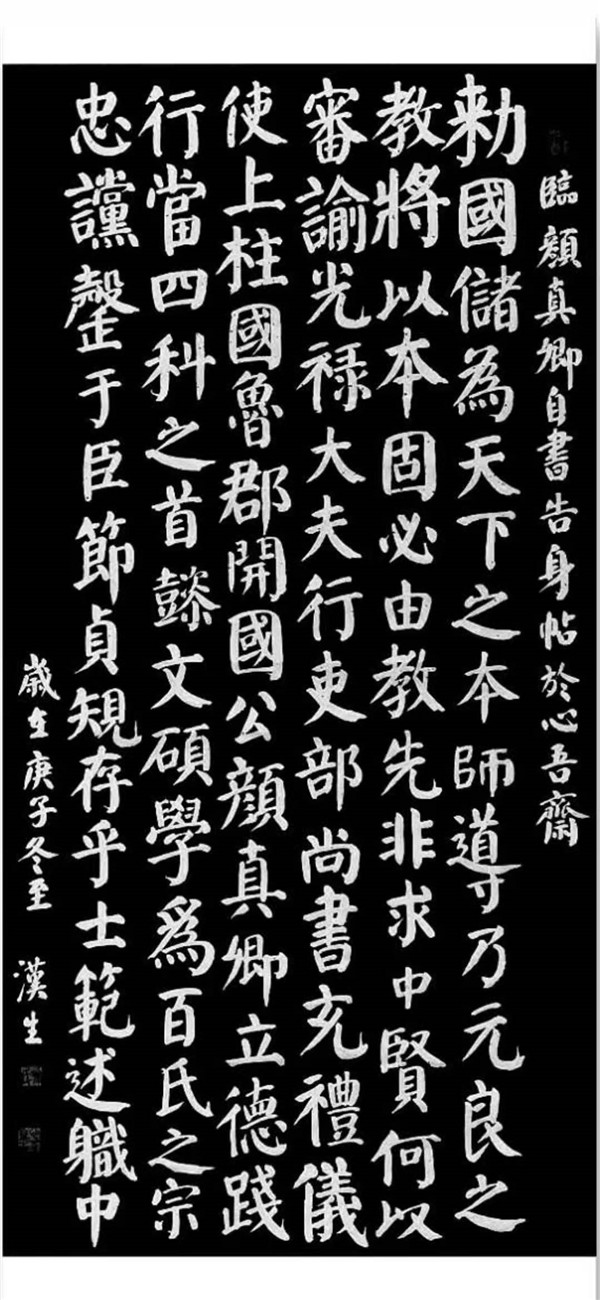 臨顏真卿自書告身帖於心吾齋
勅國儲為天下之本師導乃元良之
教將以本固必由教先非求中賢何以
審諭光祿大夫行吏部尚書充禮儀
使上柱國魯郡開國公顏真卿立德踐
行當四科之首懿文碩學爲百氏之宗
忠讜罄于臣節貞規存乎士範述職中
歲在庚子冬至 漢生